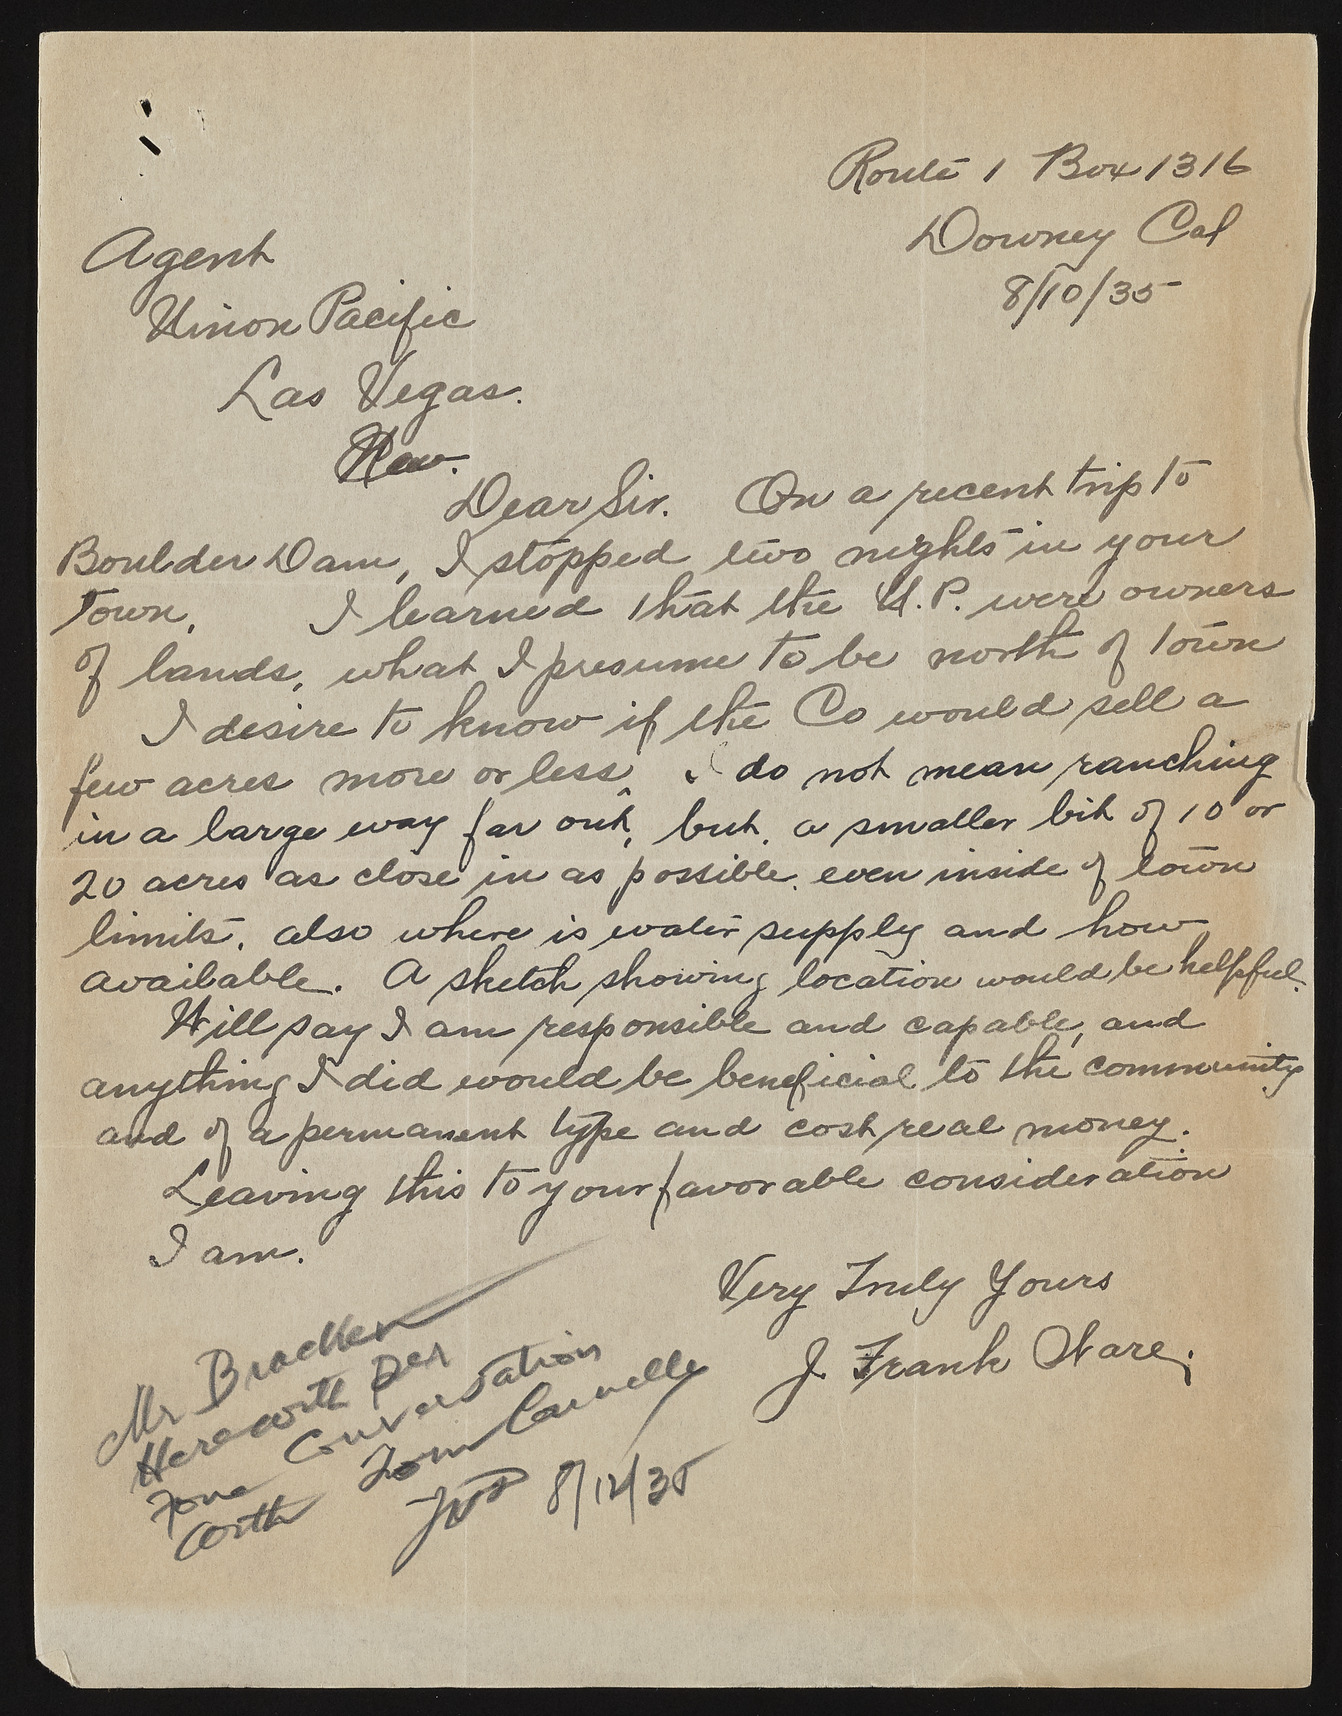 Route 1 Box 1316
Downey Cal
8/10/35
Agent
Union Pacific
Las Vegas.
Nev.
Dear Sir. On a recent trip to
Boulder Dam, I stopped two nights in your
town. I learned that the U.P. were owners
of lands, what I presume to be north of town
I desire to know if the Co would sell a
few acres more or less, I do not mean ranching
in a large way far out, but, a smaller bit of 10 or
20 acres as close in as possible. even inside of town
limits, also where is water supply and how
available. A sketch showing location would be helpful.
Will say I am responsible and capable, and
anything I did would be beneficial to the community
and of a permanent type and cost real money.
Leaving this to your favorable consideration
I am.
Very Truly Yours
J. Frank Ware.
Mr Bracken
Herewith per
fone conversation
with Tom
8/12/35